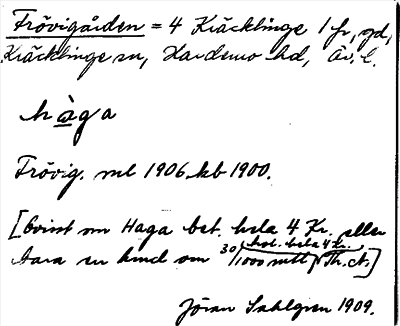 Frövigården = 4 Kräcklinge 1 fr, gd,
Kräcklinge sn, Hardemo hd, Ör. l.
hàga
Frövig. ml 1906, kb 1900.
[Ovisst om Haga bet. hela 4 Kr. eller
bara en hmd om 30/1000 mtl
hel. hela 4 Kr.
Jöran Sahlgren 1909.